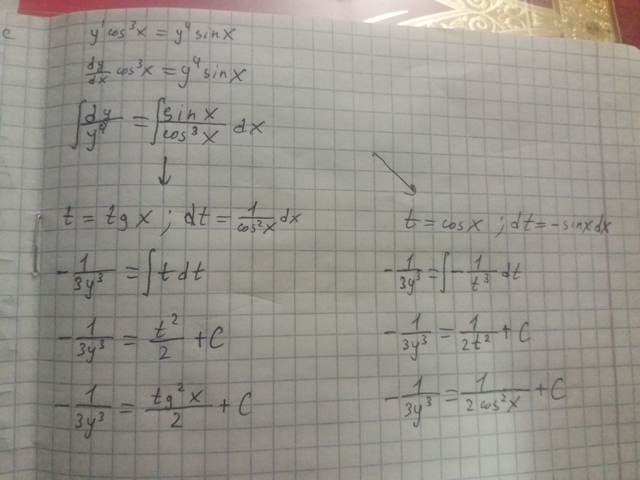 y' cos³x = y⁴ sin x
dy/dx cos³x = y⁴ sin x
∫ dy/y⁴ = ∫ sin x/cos³x dx
t = tg x ; dt = 1/cos²x dx
-1/3y³ = ∫ t dt
-1/3y³ = t²/2 + C
-1/3y³ = tg²x/2 + C
t = cos x ; dt = -sin x dx
-1/3y³ = ∫ -1/t³ dt
-1/3y³ = 1/2t² + C
-1/3y³ = 1/2cos²x + C